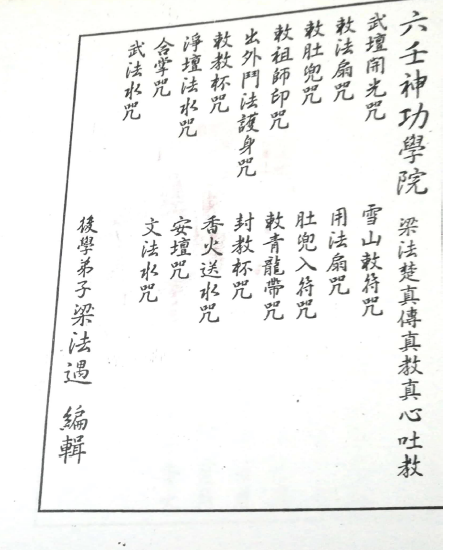 六壬神功學院 梁法楚真傳真教真心吐教
武壇開光咒 雪山敕符咒
敕法扇咒 用法扇咒
敕肚兜咒 肚兜入符咒
敕祖師印咒 敕青龍帶咒
出外鬥法護身咒 封教杯咒
敕教杯咒 香火送水咒
淨壇法水咒 安壇咒
合掌咒 文法水咒
武法水咒
後學弟子梁法遇 編輯